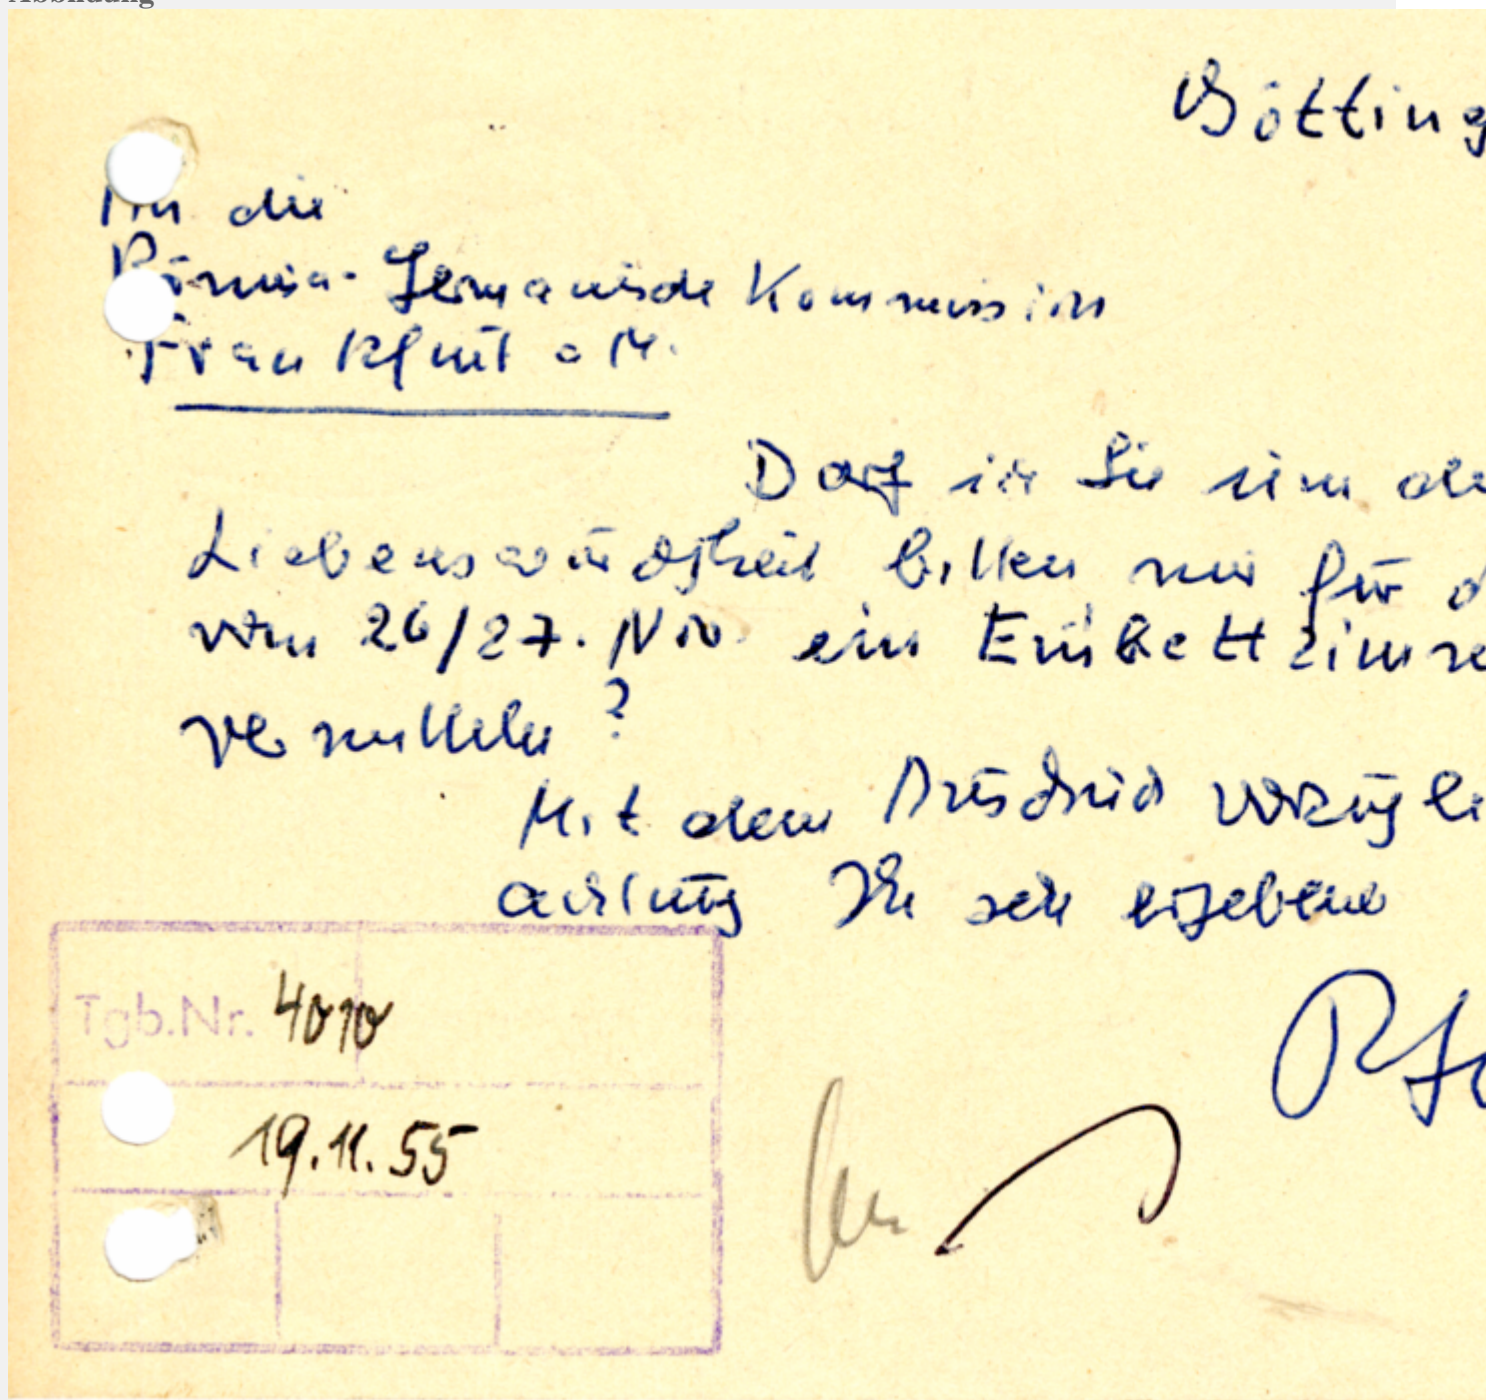 Abbildung
Götting
An die
Römisch-Germanische Kommission
Frankfurt a M.
Darf ich Sie um die
Liebenswürdigkeit bitten mir für d
vom 26/27. Nov. ein Einbettzimme
vermitteln?
Mit dem Ausdruck vorzügli
achtung Ihr sehr ergebener
Tgb.Nr. 4010
19.11.55